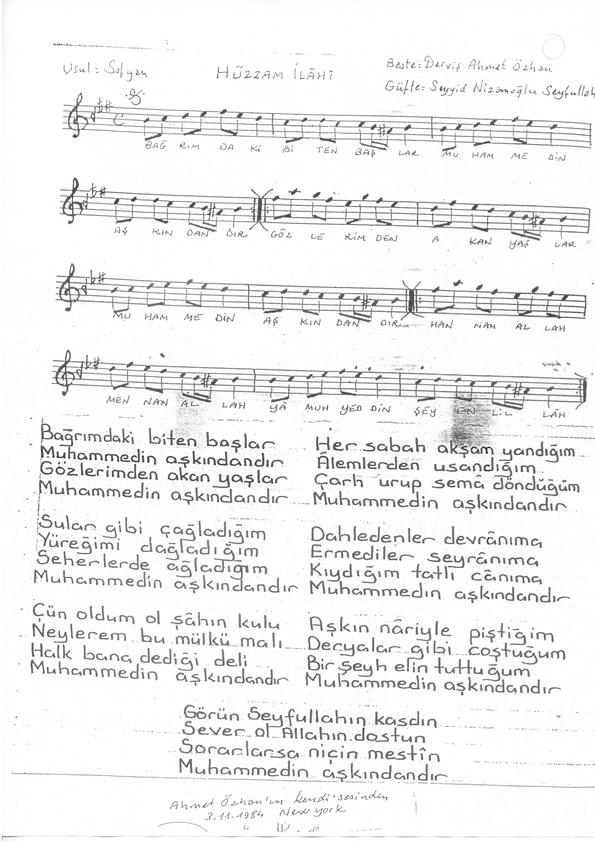 Usul: Sofyan
HÜZZAM İLÂHÎ
Beste: Derviş Ahmet Özhan
Güfte: Seyyid Nizamoğlu Seyfullah
BAĞ RIM DA Kİ Bİ TEN BAŞ LAR MU HAM ME DİN
AŞ KIN DAN DIR GÖZ LE RİM DEN A KAN YAŞ LAR
MU HAM ME DİN AŞ KIN DAN DIR HAN NAN AL LAH
MEN NAN AL LAH YÂ MUH YED DİN ŞEY LİL LÂH
Bağrımdaki biten başlar
Muhammedin aşkındandır
Gözlerimden akan yaşlar
Muhammedin aşkındandır
Sular gibi çağladığım
Yüreğimi dağladığım
Seherlerde ağladığım
Muhammedin aşkındandır
Çün oldum ol şâhın kulu
Neylerem bu mülkü malı
Halk bana dediği deli
Muhammedin aşkındandır
Her sabah akşam yandığım
Âlemlerden usandığım
Çarh urup sema döndüğüm
Muhammedin aşkındandır
Dahledenler devrânıma
Ermediler seyrânıma
Kıydığım tatlı cânıma
Muhammedin aşkındandır
Aşkın nâriyle piştiğim
Deryalar gibi coştuğum
Bir şeyh elin tuttuğum
Muhammedin aşkındandır
Görün Seyfullahın kasdın
Sever ol Allahın dostun
Sorarlarsa niçin mestîn
Muhammedin aşkındandır
Ahmet Özhan'ın kendi sesinden
3.11.1984 New york